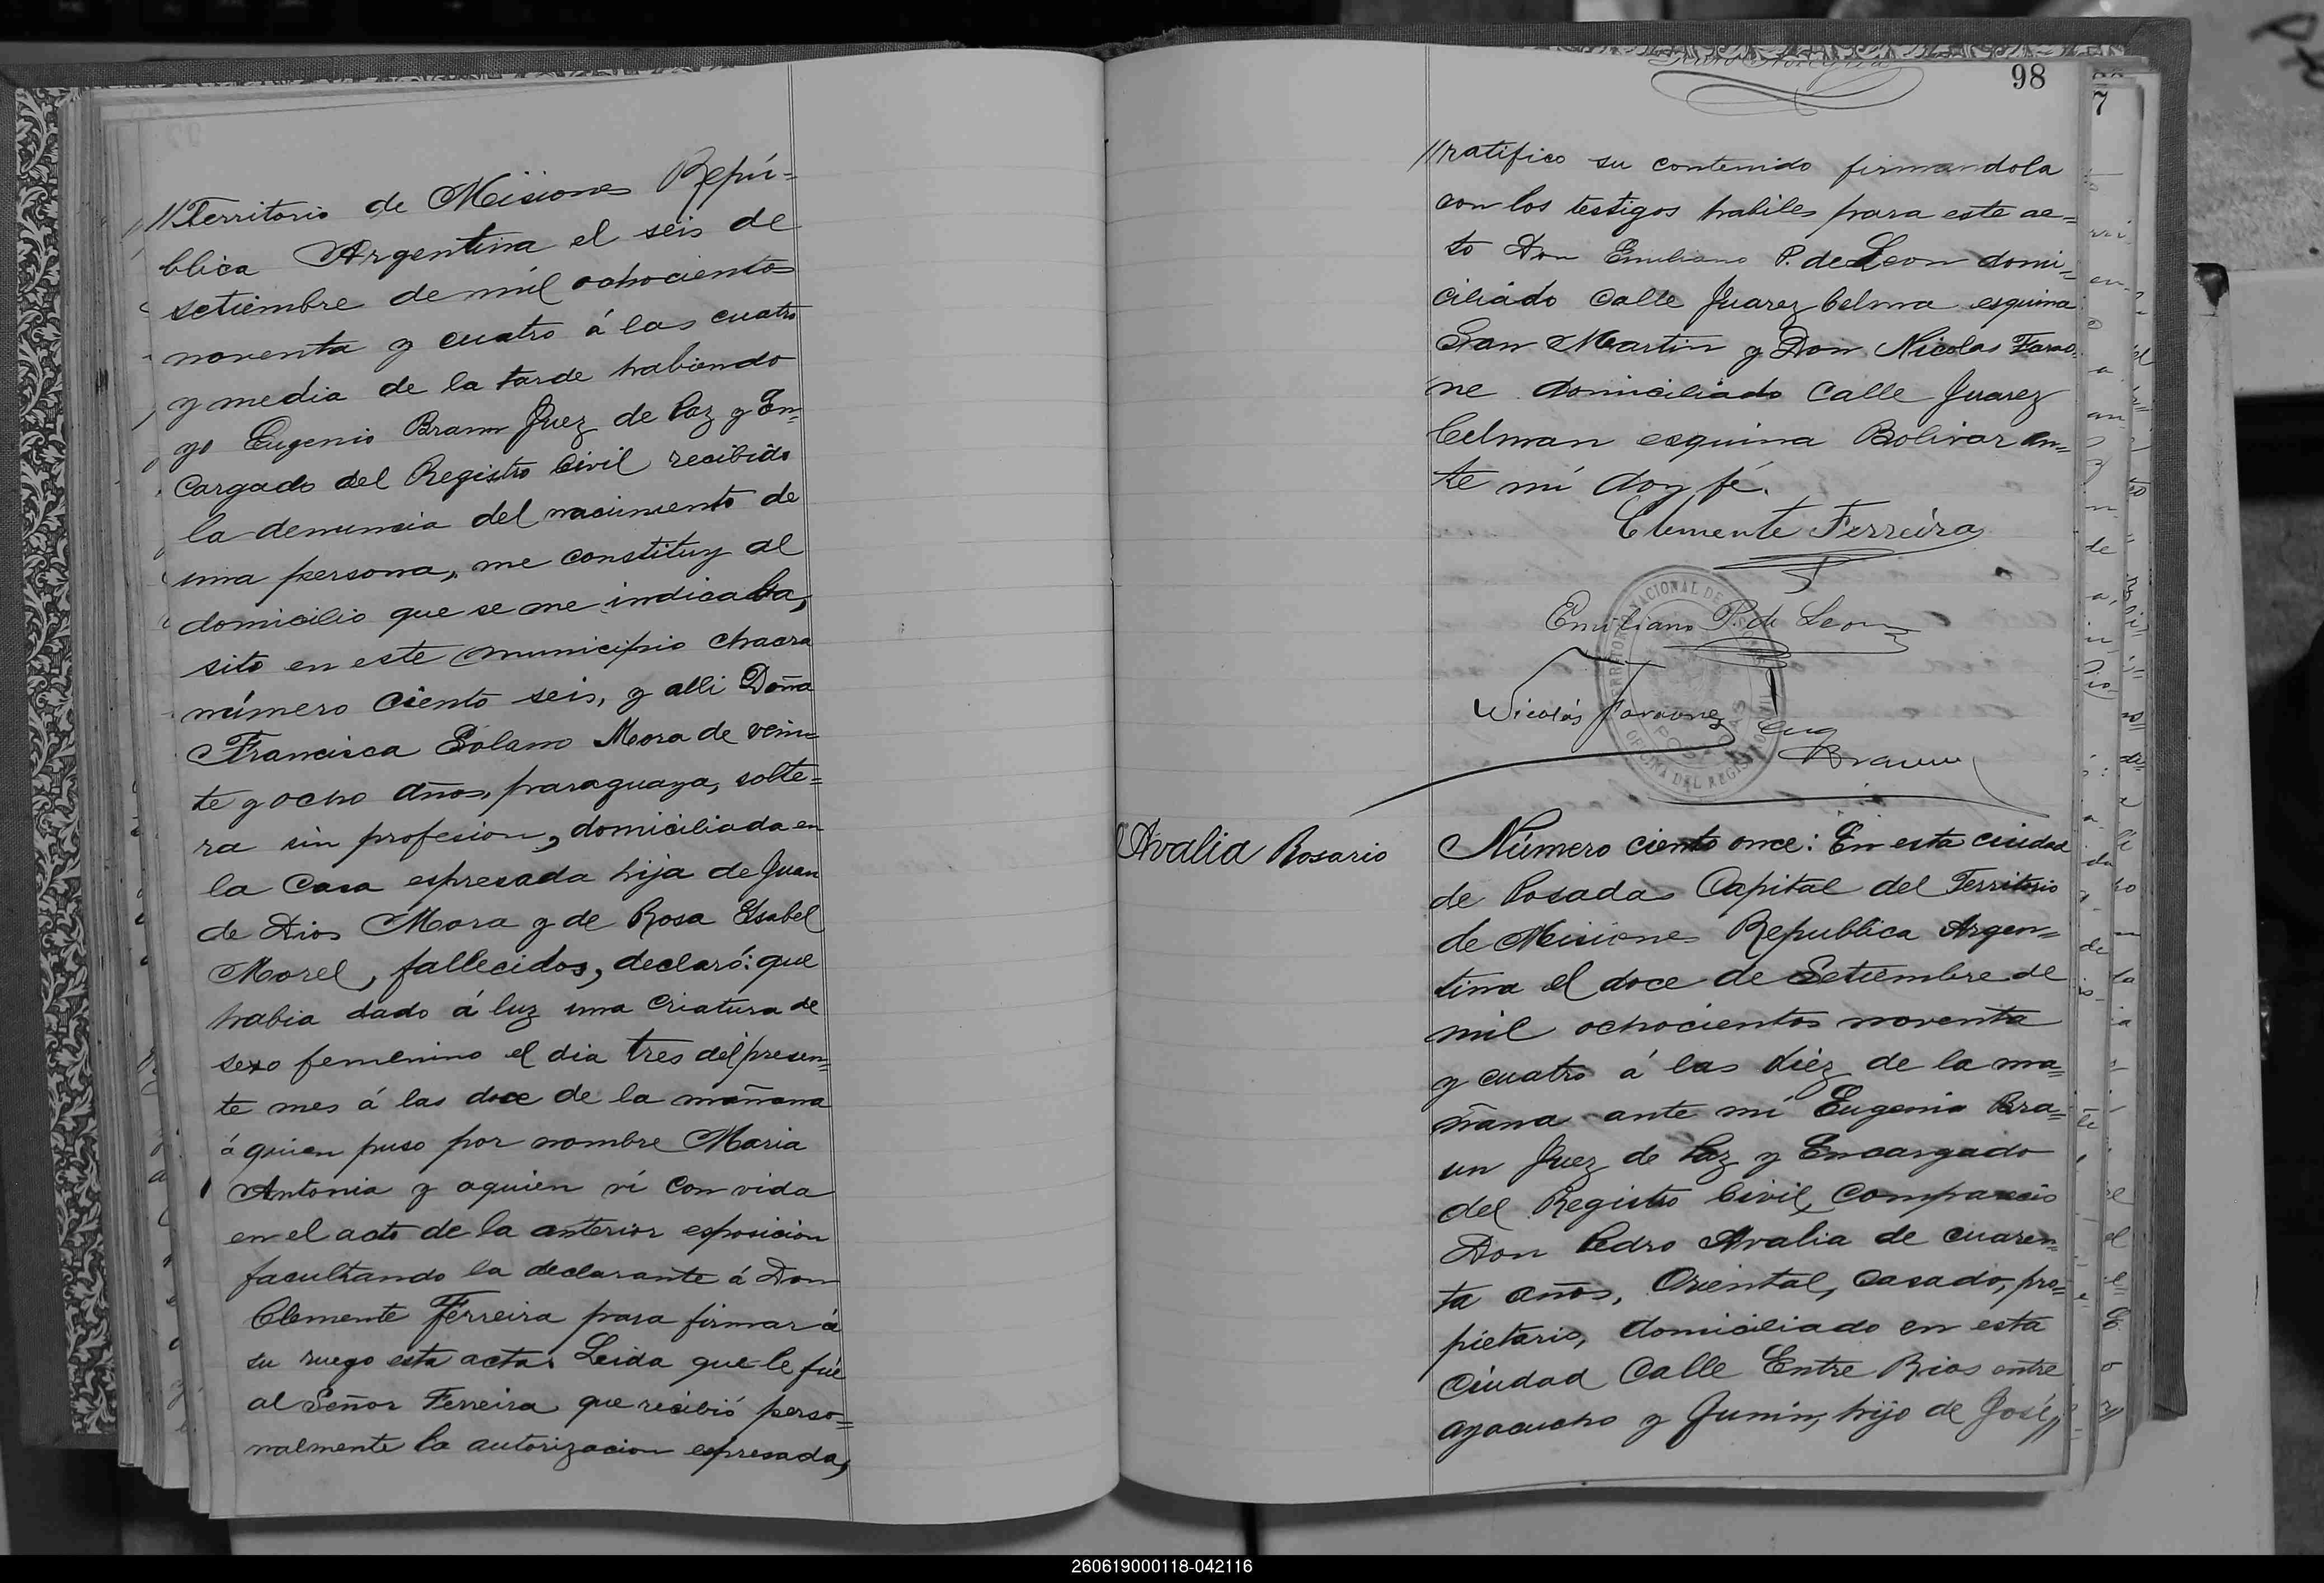 //Territorio de Misiones Repú=
blica Argentina el seis de
setiembre de mil ochocientos
noventa y cuatro á las cuatro
y media de la tarde habiendo
yo Eugenio Braun Juez de Paz y En=
cargado del Registro Civil recibido
la denuncia del nacimiento de
una persona, me constituy al
domicilio que se me indicaba,
sito en este municipio chacra
número ciento seis, y alli Doña
Francisca Solano Mora de vein=
te y ocho años, paraguaya, solte=
ra sin profesion, domiciliada en
la casa espresada hija de Juan
de Dios Mora y de Rosa Isabel
Morel, fallecidos, declaró: que
habia dado á luz una criatura de
sexo femenino el dia tres del presen=
te mes á las doce de la mañana
á quien puso por nombre Maria
Antonia y aquien ví con vida
en el acto de la anterior esposicion
facultando la declarante á Don
Clemente Ferreira para firmar á
su ruego esta acta. Leida que le fué
al Señor Ferreira que recibió perso=
nalmente la autorizacion espresada,
98
//ratifico su contenido firmandola
con los testigos habiles para este ac=
to Don Emiliano P. de Leon domi=
ciliado Calle Juarez Celma esquina
San Martin y Don Nicolas Farao=
ne domiciliado Calle Juarez
Celman esquina Bolivar an=
te mi doy fé.
Clemente Ferreira
Emiliano P. de Leon
Nicolás Faraone
Eug
Braun
TERRITORIO NACIONAL DE MISIONES
OFICINA DEL REGISTRO CIVIL
POSADAS
Avalia Rosario
Número ciento once: En esta ciudad
de Posadas Capital del Territorio
de Misiones Republica Argen=
tina el doce de Setiembre de
mil ochocientos noventa
y cuatro á las diéz de la ma=
ñana ante mí Eugenio Bra=
un Juez de Paz y Encargado
del Registro Civil, Comparecio
Don Pedro Avalia de cuaren=
ta años, Oriental, casado, pro=
pietario, domiciliado en esta
Ciudad Calle Entre Rios entre
ayacucho y Junin, hijo de José//
7
260619000118-042116